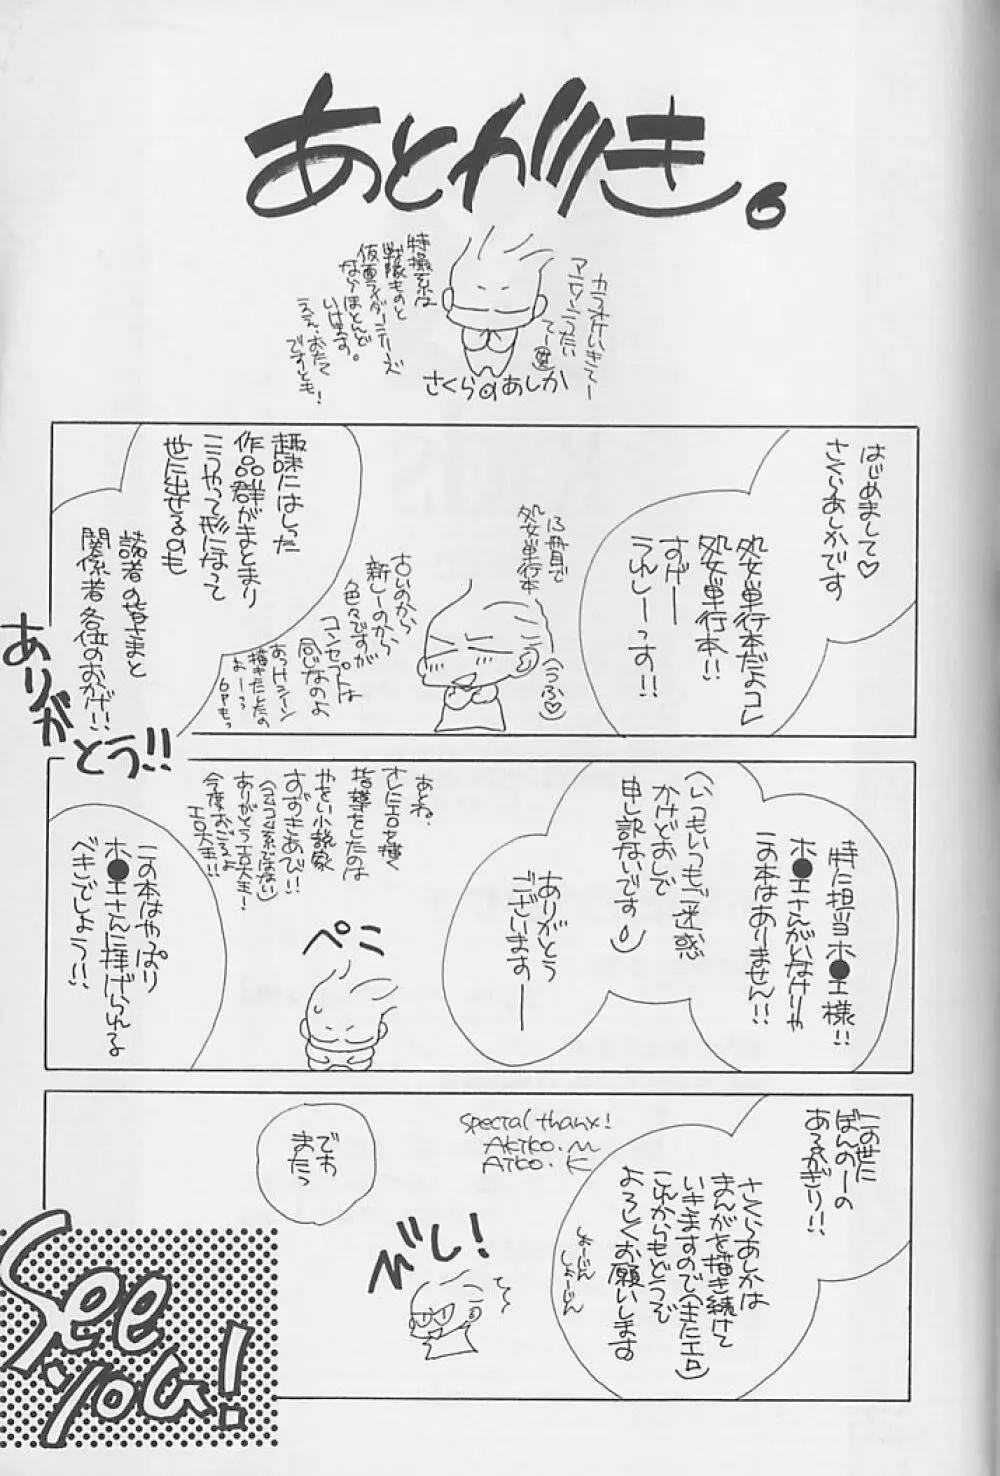 あとがき。
カラオケいきてー
アニソンうたい
てー
特撮系は
戦隊ものと
仮面ライダーシリーズ
ならほとんど
いけます。
ええ、おたく
ですとも!
さくらのあしか
はじめまして♡
さくらあしかです
処女単行本だよコレ
処女単行本!!
すげーー
うれしーっす!!
13冊目で
処女単行本
(うふ♡)
古いのから
新しーのから
色々ですが
コンセプトは
同じなのよ
あっHシーン
描きたしたの
よーっ
6Pも
趣味にはしった
作品群がまとまり
こうやって形になって
世に出せるのも
読者の皆さまと
関係者各位のおかげ!!
ありがとう!!
特に担当ホ●エ様!!
ホ●エさんがいなけりゃ
この本はありません!!
(いつもいつもご迷惑
かけどおしで
申し訳ないです)
ありがとう
ございますーー
ペこ
あとね、
さらにエロを描く
指導をしたのは
やおい小説家
すずきあび!!
ありがとうエロ大王!
今度おごるよ
エロ大王!!
この本はやっぱり
ホ●エさんに捧げられる
べきでしょう!!
この世に
ぼんのーの
あるかぎり!!
さくらあしかは
まんがを描き続けて
いきますので(またエロ)
これからもどうぞ
よろしくお願いします
しょーじん
しょーじん
Special thanx!
AKIKO.M
AIKO.K
ビシ!
でわ
またっ
See
you!